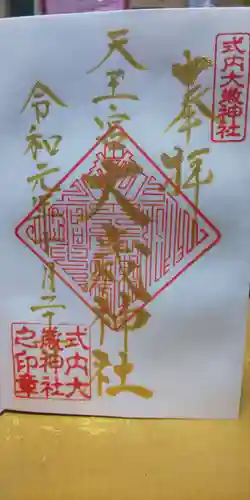 式内大歳神社
奉拝
天王宮
大歳神社
令和元年
月二十
式内大
歳神社
之印章